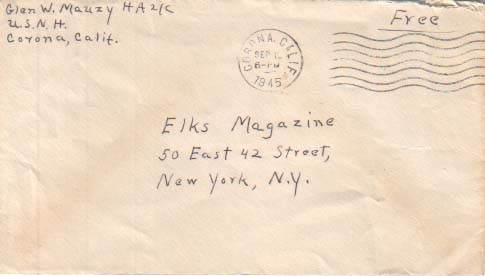 Glen W. Mauzy HA 2/C
U.S.N.H.
Corona, Calif.
Free
CORONA, CALIF.
SEP
6-PM
1945
Elks Magazine
50 East 42 Street,
New York, N.Y.